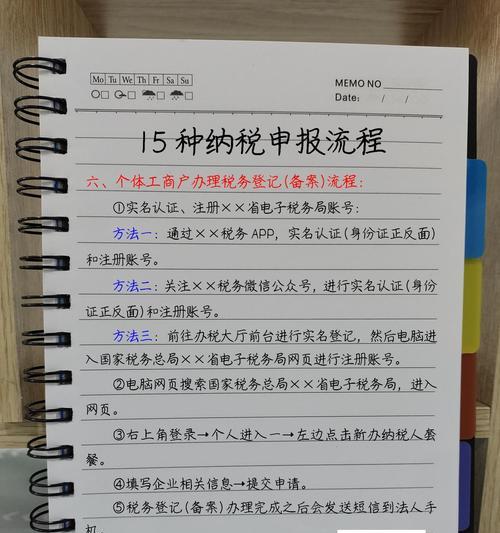 Mo Tu We Th Fr Sa Su
MEMO NO
Date: / /
15种纳税申报流程
六、个体工商户办理税务登记(备案)流程:
①实名认证、注册××省电子税务局账号:
方法一:通过××税务APP,实名认证(身份证正反面)
和注册账号。
方法二:关注××税务微信公众号,进行实名认证(身份
证正反面)和注册账号。
方法三:前往办税大厅前台进行实名登记,然后电脑进
入国家税务总局××省电子税务局网页进行注册账号。
②电脑网页搜索国家税务总局××省电子税务局,进入
网页。
③右上角登录→个人进入一→左边点击新办纳税人套
餐。
④填写企业相关信息→提交申请。
⑤税务登记(备案)办理完成之后会发送短信到法人手
机